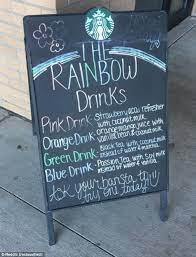 THE
RAINBOW
Drinks
Pink Drink Strawberry acai refresher
with coconut milk
Orange Drink orange mango juice with
vanilla bean & coconut milk
Green Drink Black Tea with coconut milk
instead of water &
Blue Drink Passion Tea with Soy milk
instead of water & vanilla
Ask your barista they
try one today!